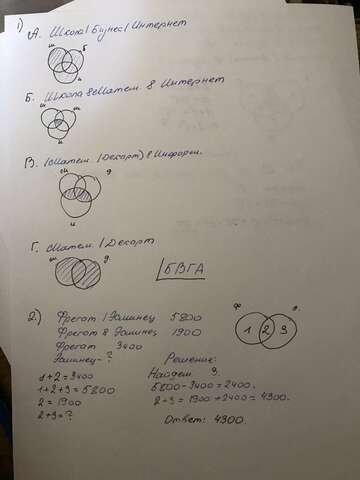 1)
А. Школа | Бизнес | Интернет
ш б
и
Б. Школа & Матем. & Интернет
ш м
и
В. (Матем. | Декарт) & Информ.
м д
и
Г. Матем. | Декарт
м д
БВГА
2.) Фрегат | Эсминец 5800
Фрегат & Эсминец 1900
Фрегат 3400
Эсминец - ?
ф э
1 2 3
1+2=3400
1+2+3=5800
2=1900
2+3=?
Решение:
Найдем 3.
5800-3400=2400.
2+3=1900+2400=4300.
Ответ: 4300.